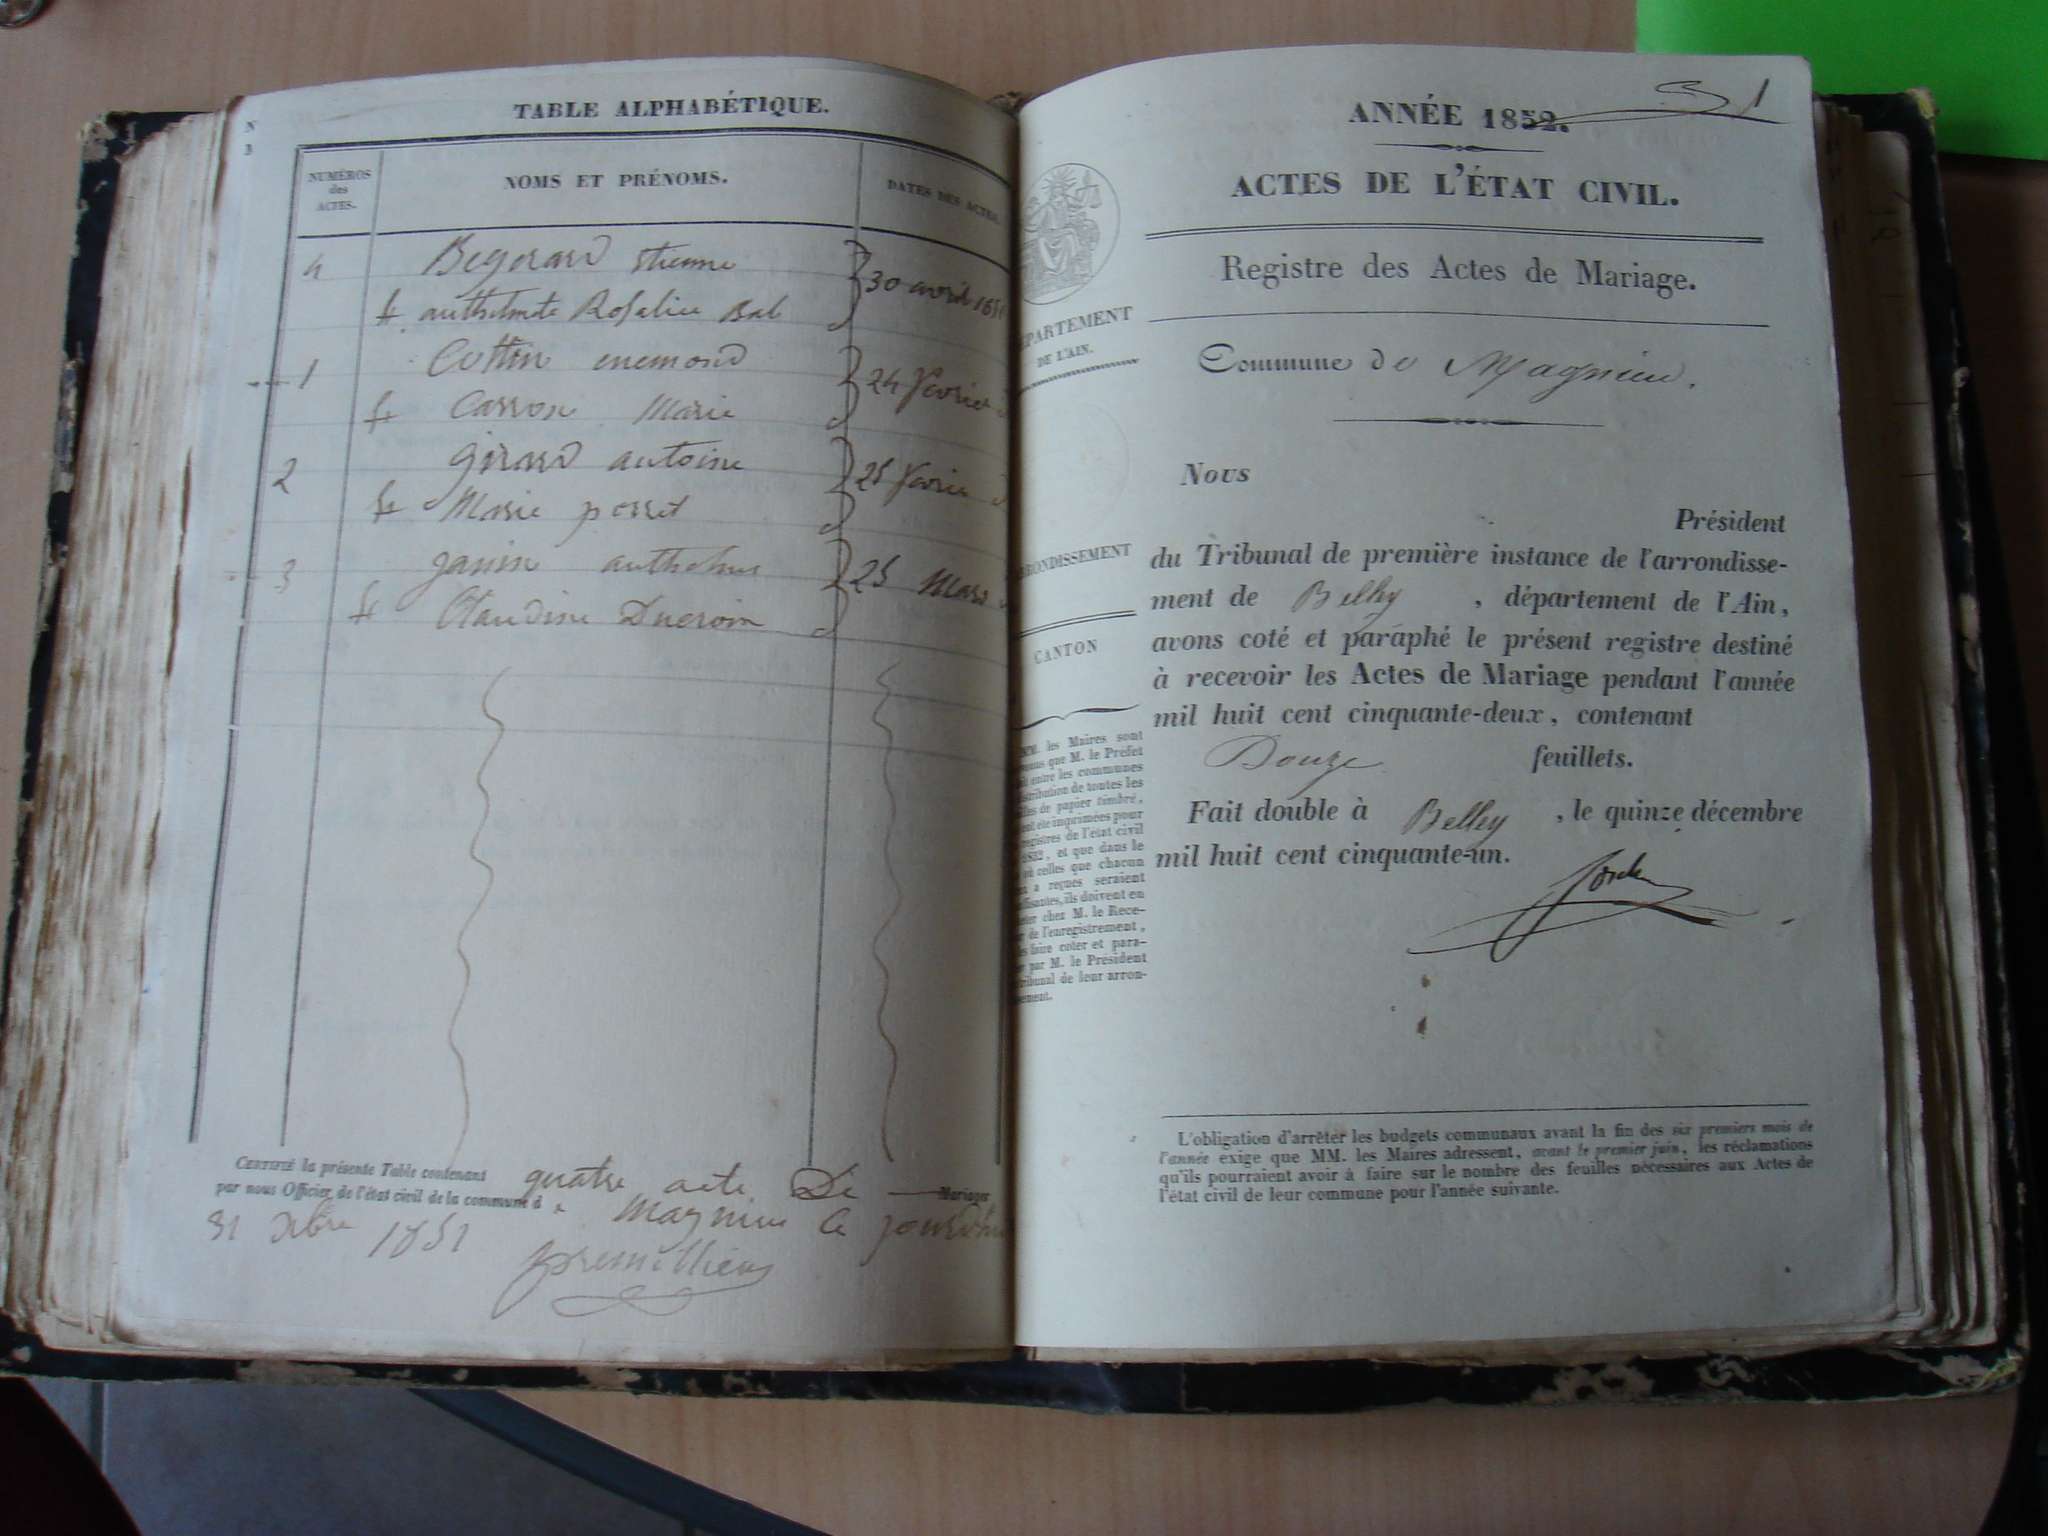 TABLE ALPHABÉTIQUE.
NUMÉROS
des
ACTES.
NOMS ET PRÉNOMS.
DATES DES ACTES.
4 Begerard etienne
& anthelmette Rosalie Bal
30 avril 1851
1 Cottin enemond
& Carron Marie
24 fevrier
2 girard antoine
& Marie perret
25 fevrier
3 janin anthelme
& Claudine Ducroin
25 Mars
CERTIFIÉ la présente Table contenant quatre acte De Mariages
par nous Officier de l'état civil de la commune d Magnieu le
31 Xbre 1851
premillieu
ANNÉE 1852.
1
ACTES DE L'ÉTAT CIVIL.
Registre des Actes de Mariage.
Commune de Magnieu.
DÉPARTEMENT
DE L'AIN.
ARRONDISSEMENT
CANTON
MM. les Maires sont
que M. le Préfet
entre les communes
distribution de toutes les
de papier timbré,
été imprimées pour
registres de l'état civil
, et que dans le
où celles que chacun
a reçues seraient
, ils doivent en
chez M. le Rece-
de l'enregistrement,
les faire coter et para-
par M. le Président
Tribunal de leur arron-
Nous
Président
du Tribunal de première instance de l'arrondisse-
ment de Belley , département de l'Ain,
avons coté et paraphé le présent registre destiné
à recevoir les Actes de Mariage pendant l'année
mil huit cent cinquante-deux, contenant
Douze feuillets.
Fait double à Belley , le quinze décembre
mil huit cent cinquante-un.
L'obligation d'arrêter les budgets communaux avant la fin des six premiers mois de
l'année exige que MM. les Maires adressent, avant le premier juin, les réclamations
qu'ils pourraient avoir à faire sur le nombre des feuilles nécessaires aux Actes de
l'état civil de leur commune pour l'année suivante.